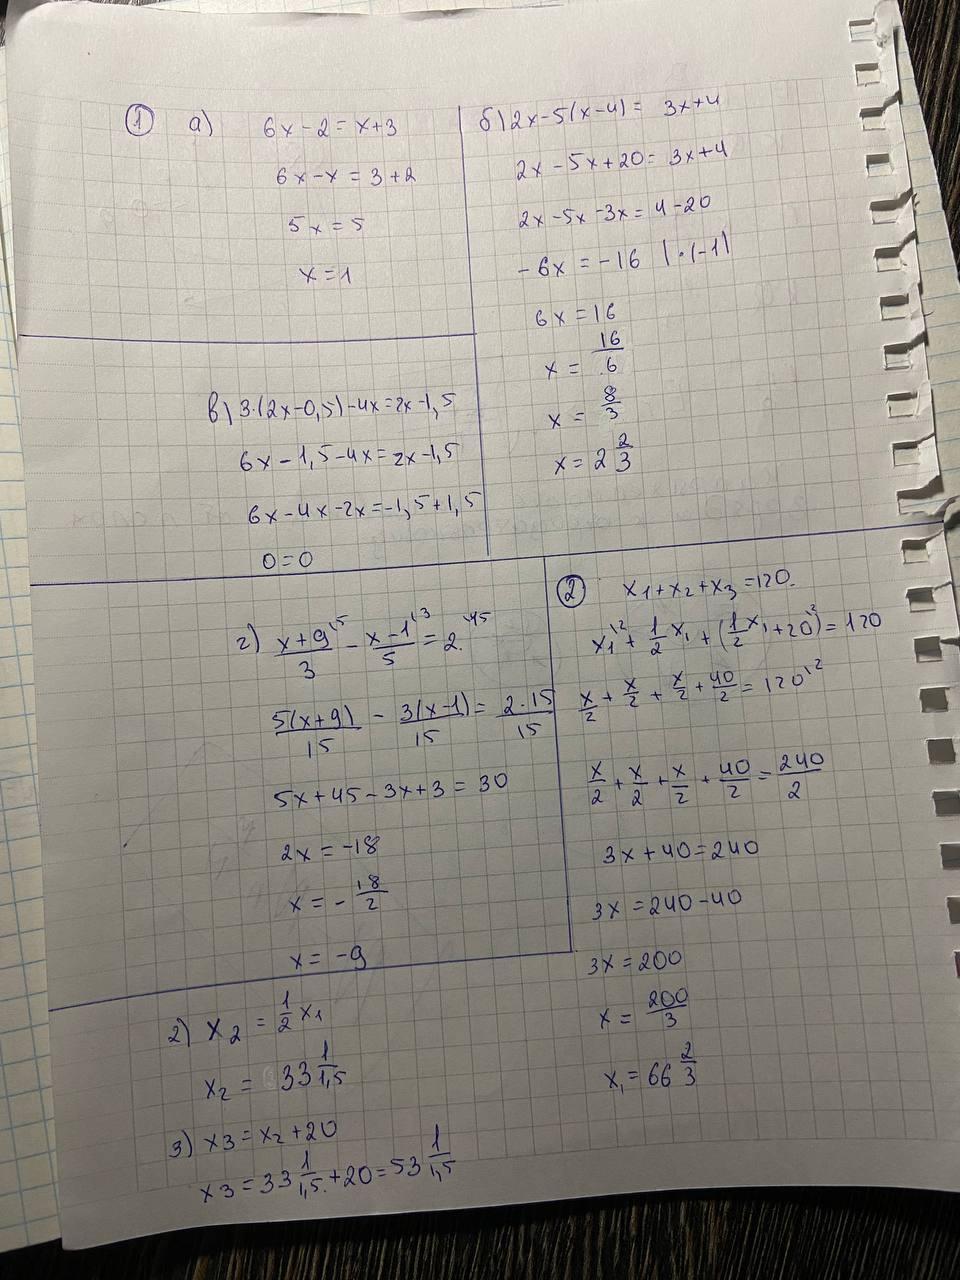 ① а) 6x-2=x+3
6x-x=3+2
5x=5
x=1
б) 2x-5(x-4)= 3x+4
2x-5x+20=3x+4
2x-5x-3x=4-20
-6x=-16 |·(-1)
6x=16
x=16/6
x=8/3
x=2 2/3
в) 3·(2x-0,5)-4x=2x-1,5
6x-1,5-4x=2x-1,5
6x-4x-2x=-1,5+1,5
0=0
г) (x+9)/3 \5 - (x-1)/5 \3 = 2 \15
5(x+9)/15 - 3(x-1)/15 = 2·15/15
5x+45-3x+3=30
2x=-18
x=-18/2
x=-9
② x₁+x₂+x₃=120.
x₁\2+1/2x₁+(1/2x₁+20)\2=120
x/2+x/2+x/2+40/2=120\2
x/2+x/2+x/2+40/2=240/2
3x+40=240
3x=240-40
3x=200
x=200/3
x₁=66 2/3
2) x₂=1/2x₁
x₂=33 1/1,5
3) x3=x₂+20
x3=33 1/1,5.+20=53 1/1,5